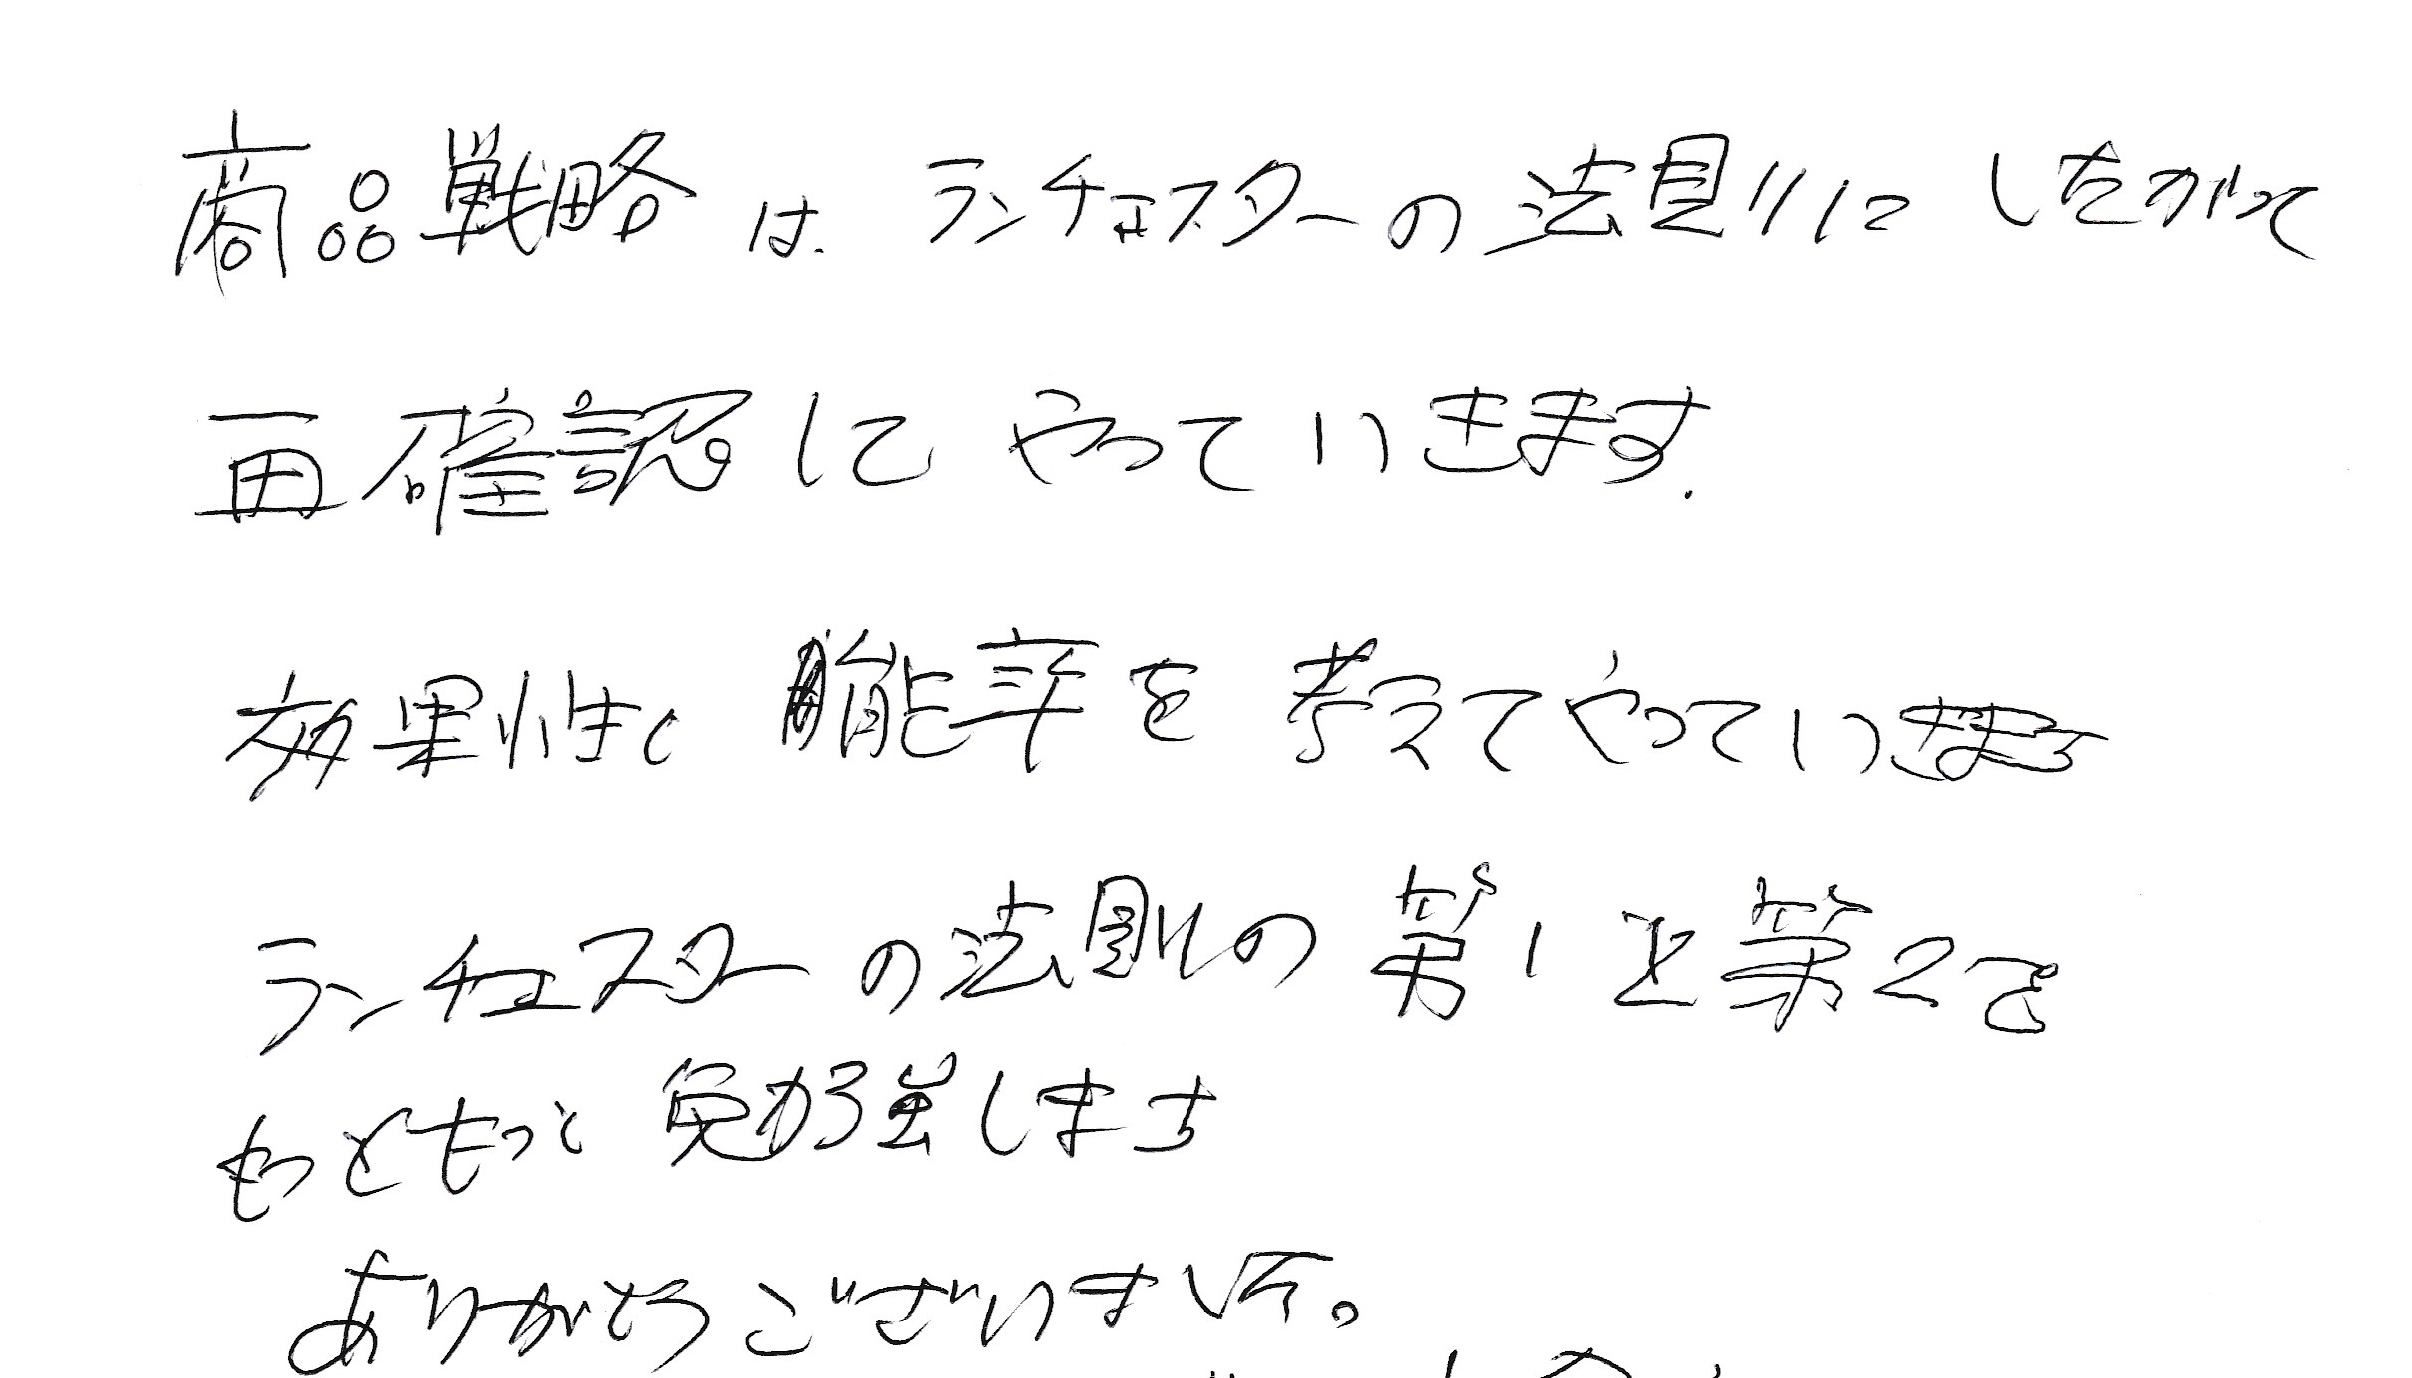 商品戦略は ランチェスターの法則にしたがって
再確認して やっていきます.
効果性と 能率を 考えてやっていきます
ランチェスターの法則の 第1と第2を
もっともっと 勉強します
ありがとうございました。